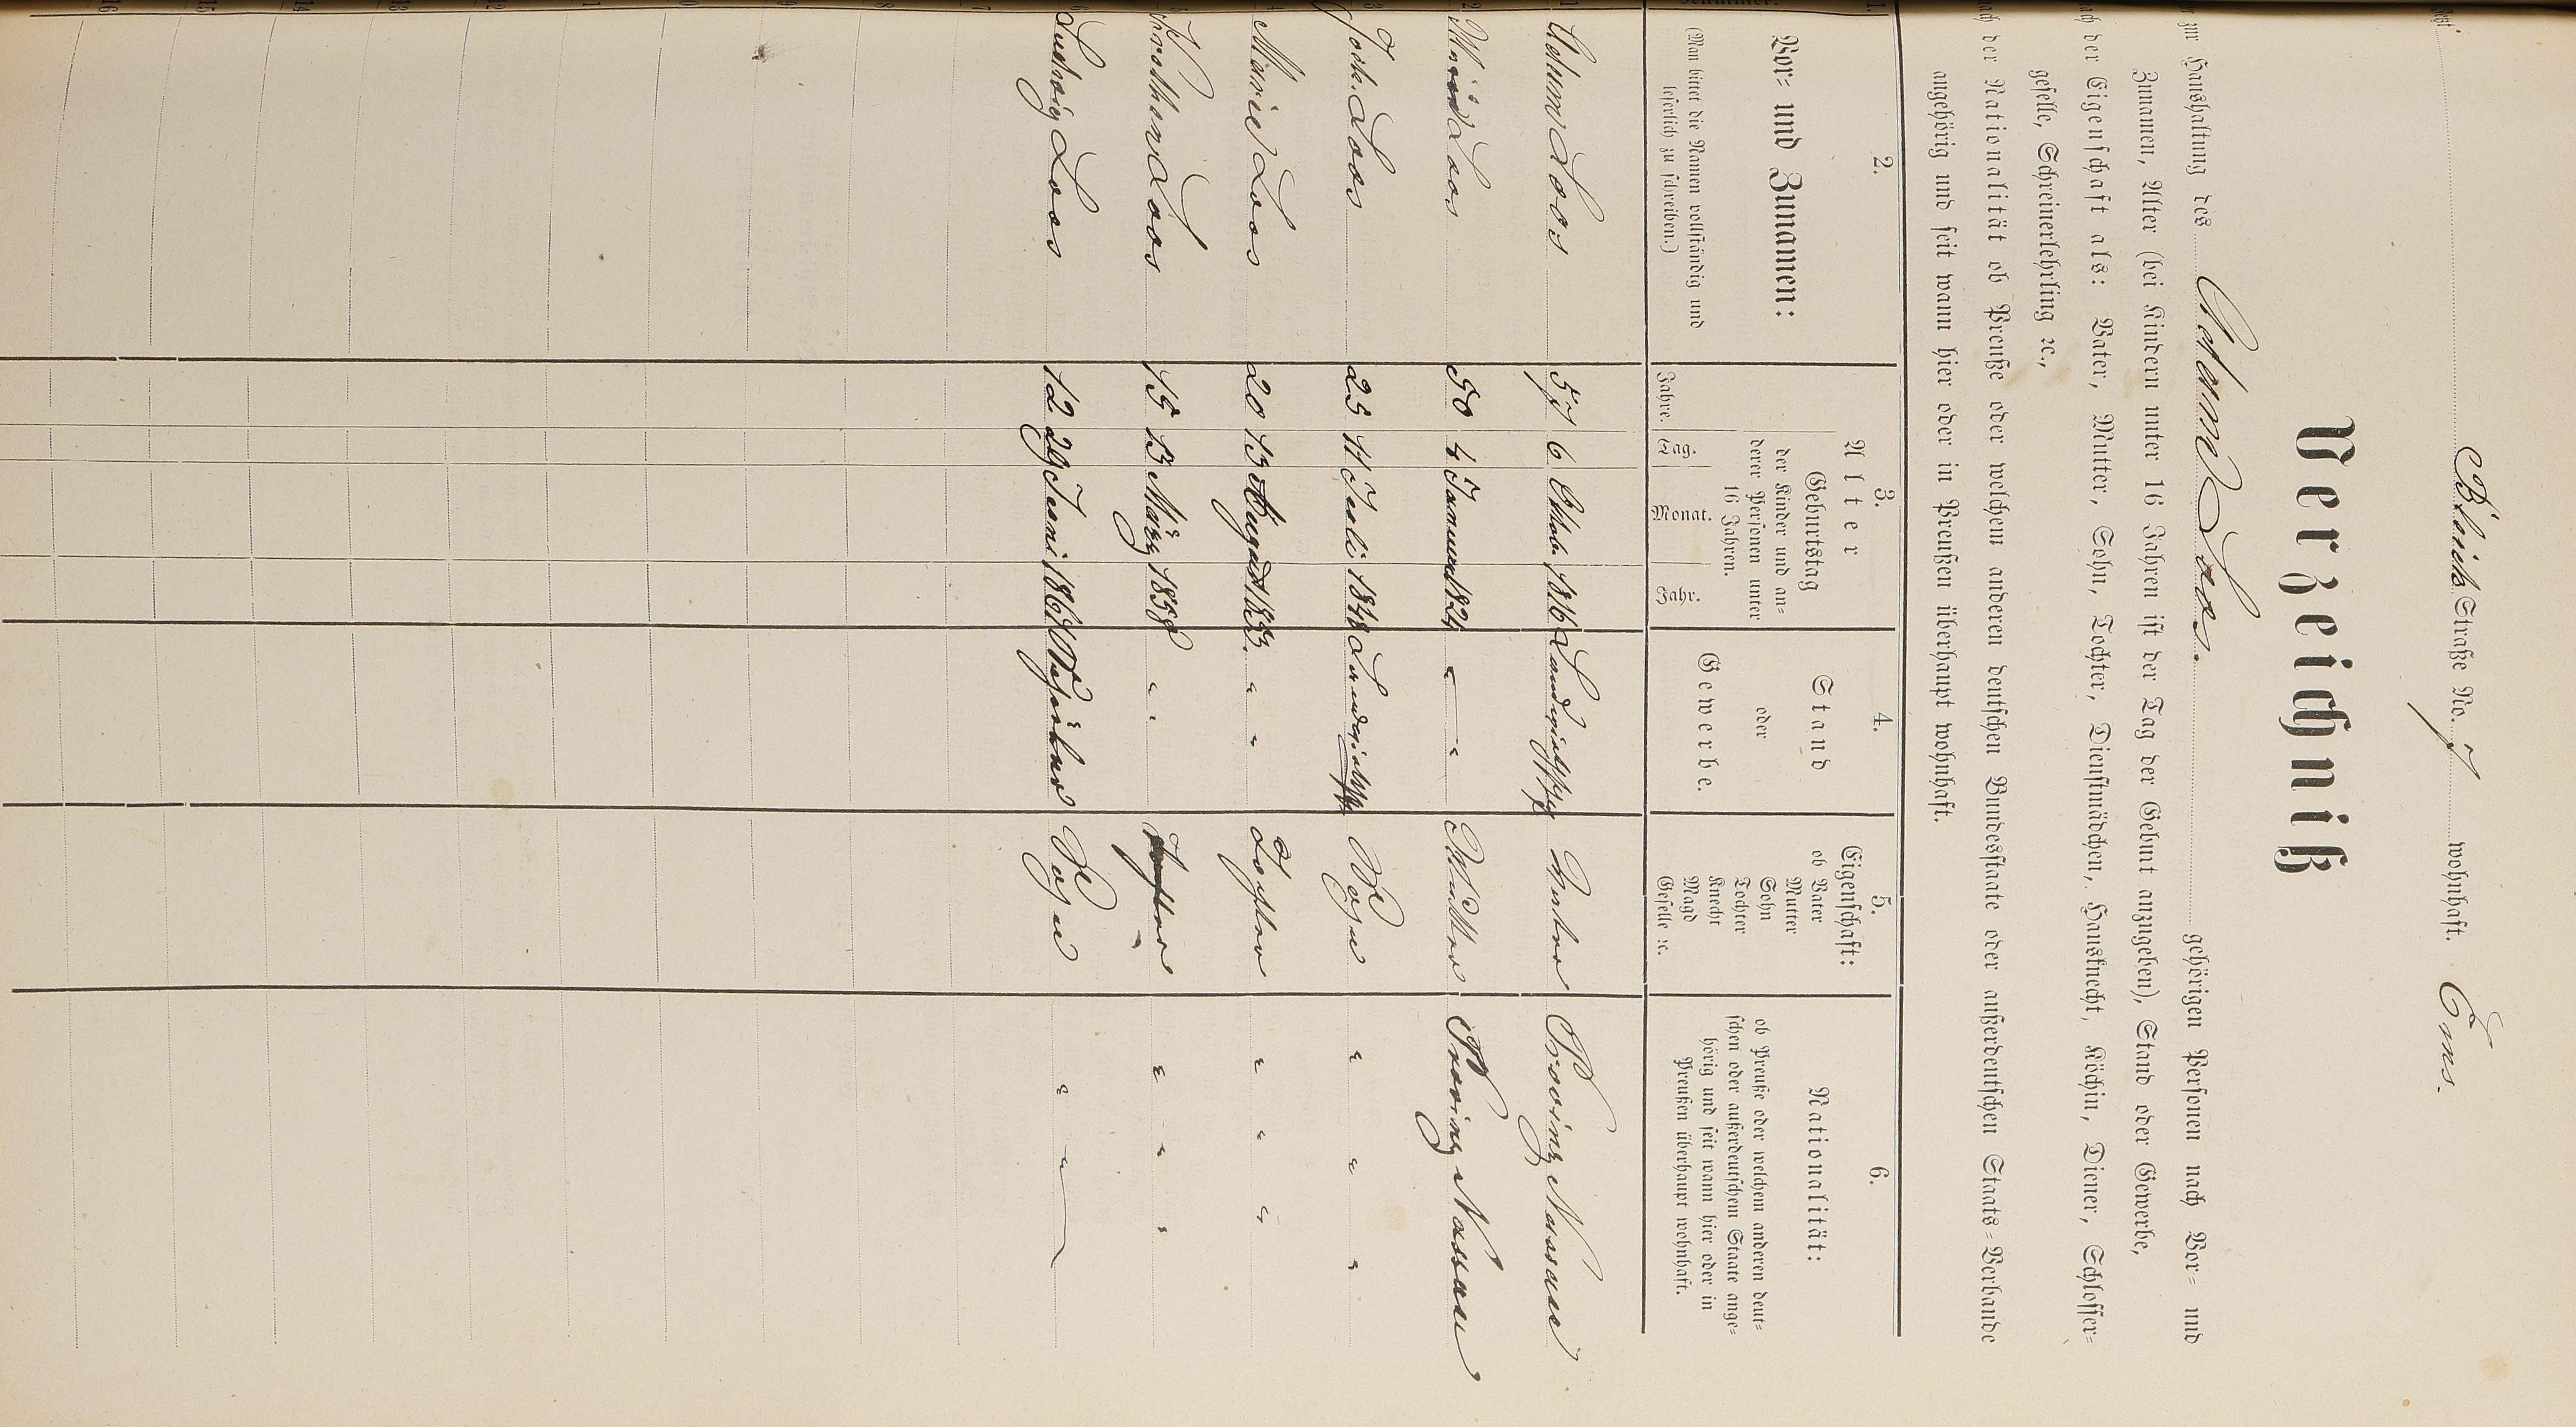 Jetzt Bleich Straße No. 7 wohnhaft. Ems.
Verzeichniß
r zur Haushaltung des Adam Loos. gehörigen Personen nach Vor- und
Zunamen, Alter (bei Kindern unter 16 Jahren ist der Tag der Geburt anzugeben), Stand oder Gewerbe,
ach der Eigenschaft als: Vater, Mutter, Sohn, Tochter, Dienstmädchen, Hausknecht, Köchin, Diener, Schlosser-
geselle, Schreinerlehrling ꝛc.,
ach der Nationalität ob Preuße oder welchem anderen deutschen Bundesstaate oder außerdeutschen Staats-Verbande
angehörig und seit wann hier oder in Preußen überhaupt wohnhaft.
1. 2. 3. 4. 5. 6.
Nummer.
Vor- und Zunamen:
(Man bittet die Namen vollständig und
leserlich zu schreiben.)
Alter
Geburtstag
der Kinder und an-
derer Personen unter
16 Jahren.
Jahre. Tag. Monat. Jahr.
Stand
oder
Gewerbe.
Eigenschaft:
ob Vater
Mutter
Sohn
Tochter
Knecht
Magd
Geselle ꝛc.
Nationalität:
ob Preuße oder welchem anderen deut-
schen oder außerdeutschem Staate ange-
hörig und seit wann hier oder in
Preußen überhaupt wohnhaft.
1 Adam Loos 57 6 Oktob. 1816 Vater Provinz Nassau
2 Loos 50 4 Januar 1824 " — " Mutter Provinz Nassau
3 Joh. Loos 25 11 Juli 1848 Sohn " " "
4 Marie Loos 20 13 August 1853. " " Tochter " " "
5 Loos 15 13 März 1858 " " Tochter " " "
6 Ludwig Loos 12 29 Juni 1861 Schüler Sohn " " —
7
8
9
10
11
12
13
14
15
16